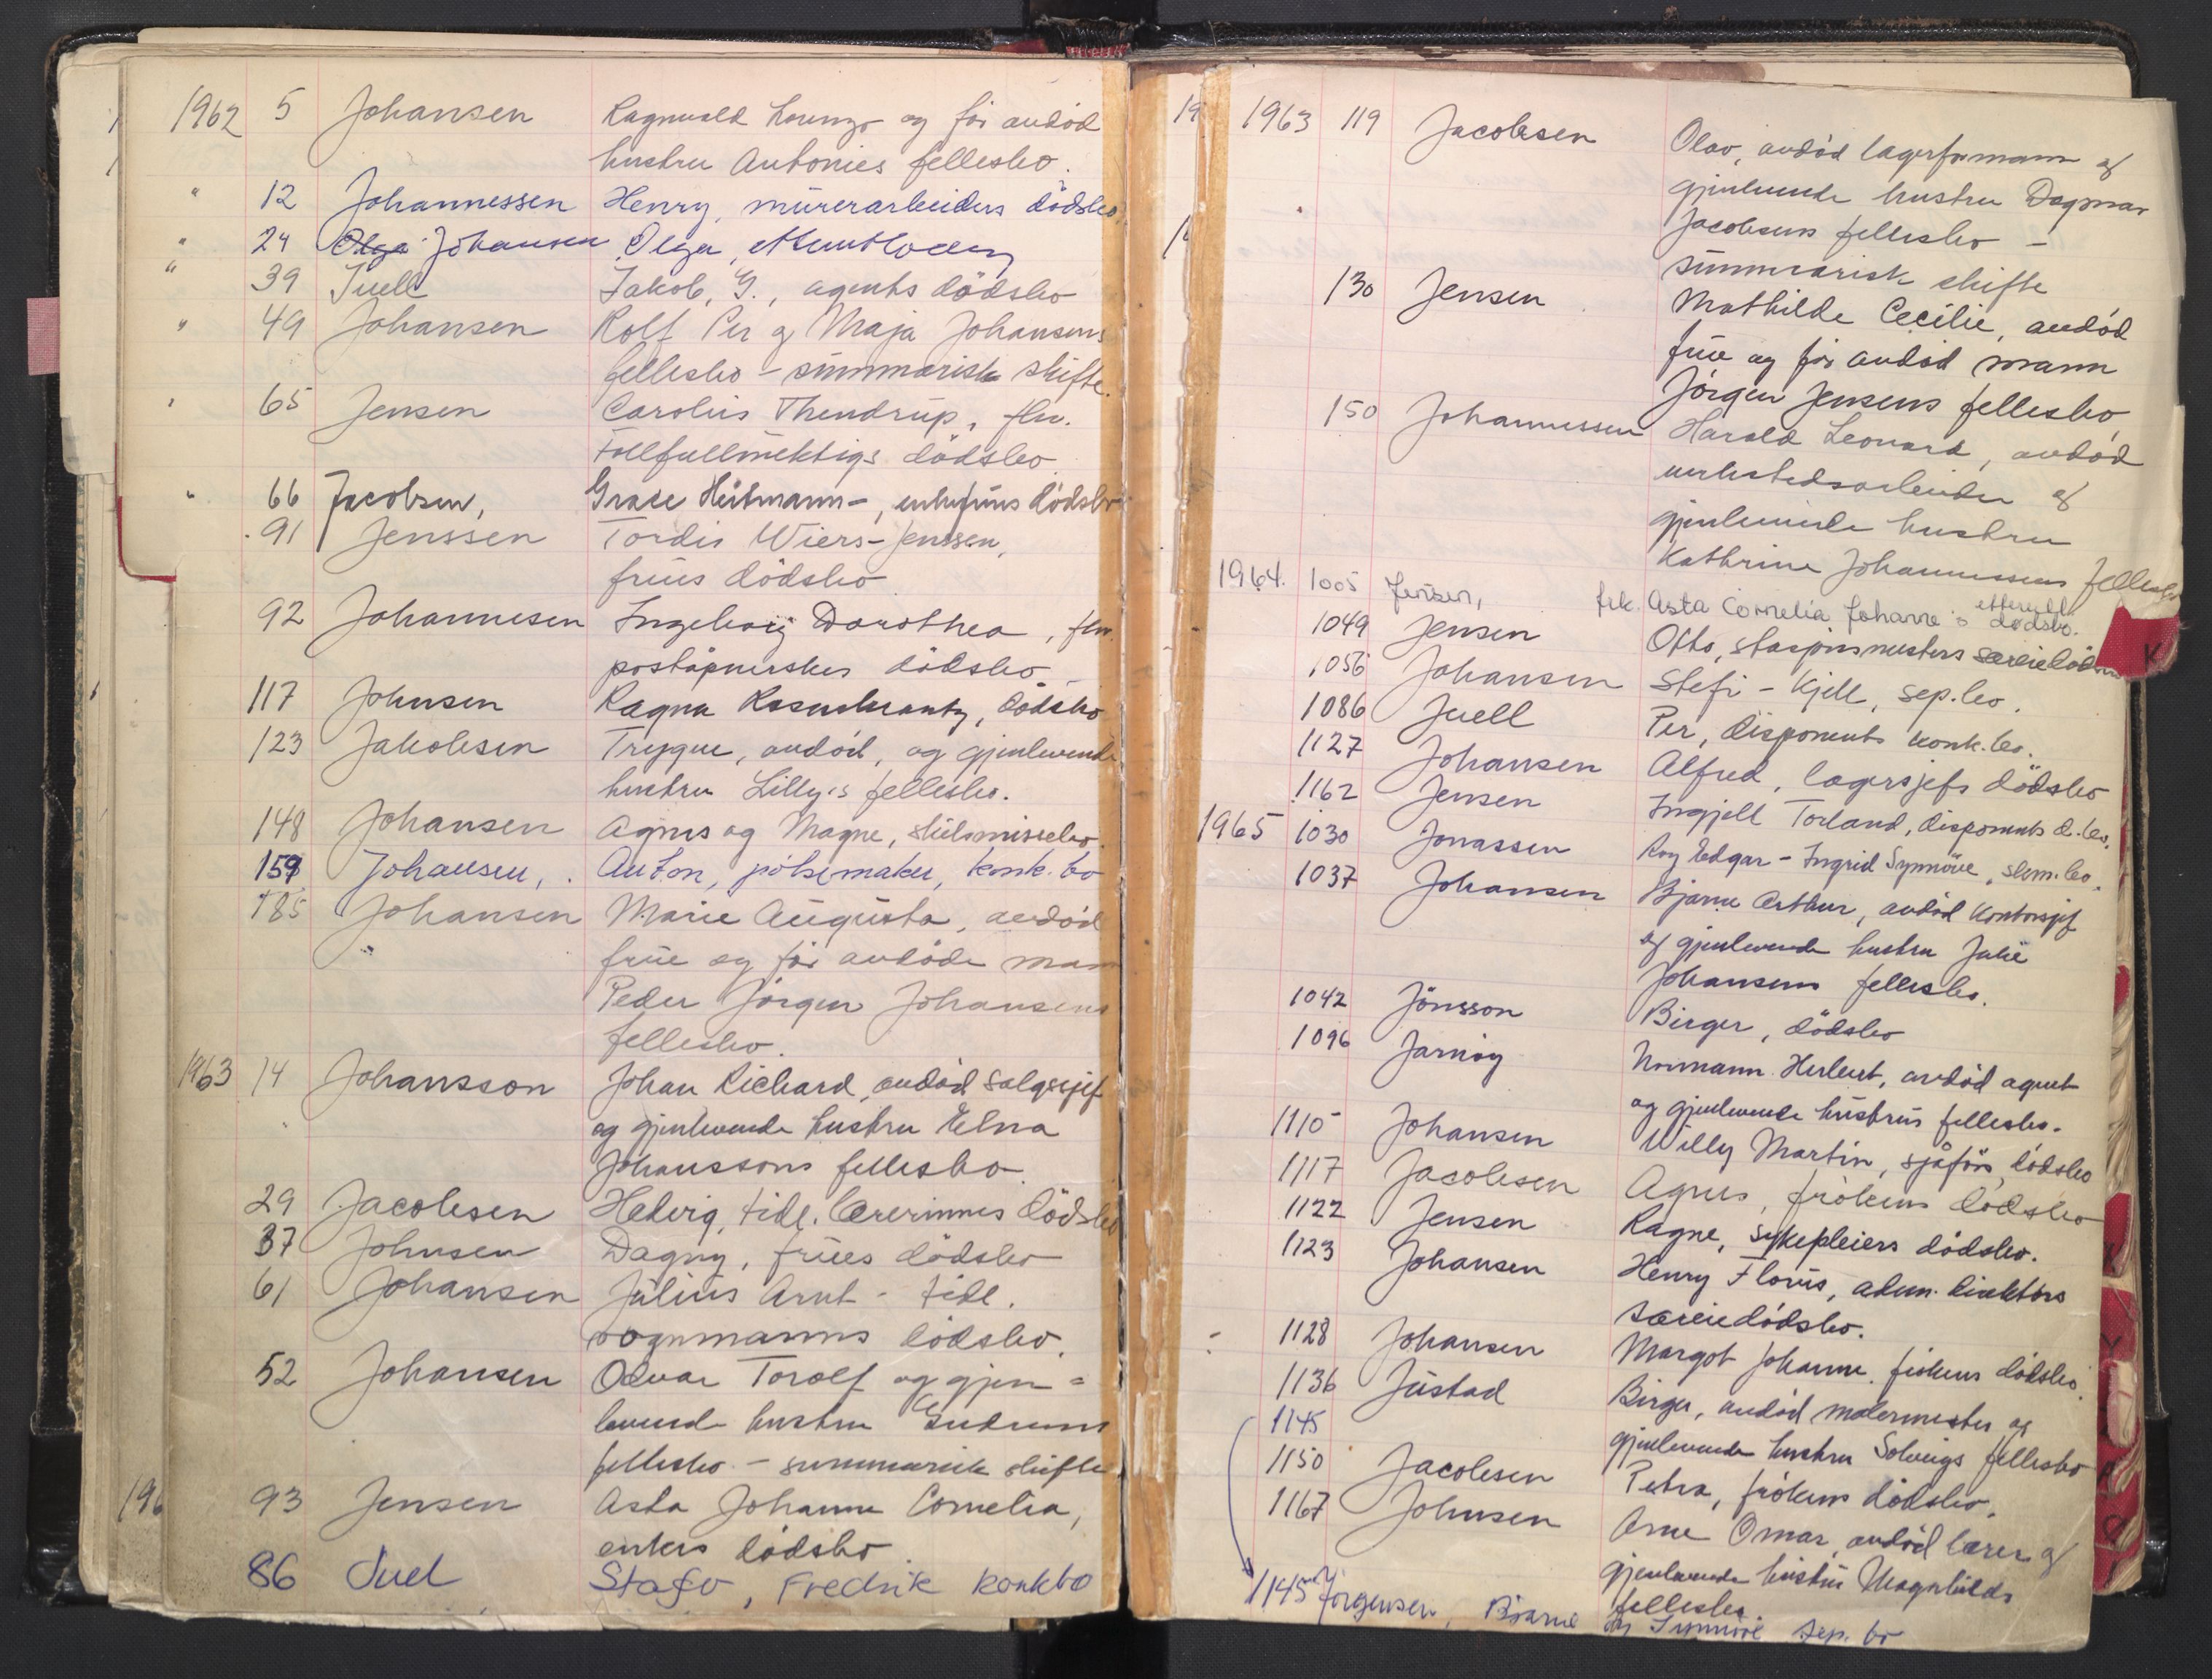 1962 5 Johansen Ragnvald Lorenzo og før avdød
hustru Antonies fellesbo.
" 12 Johannessen Henry, murerarbeiders dödsbo
" 24 Olga Johansen Olga,
" 39 Juell Jakob, G., agents dödsbo
" 49 Johansen Rolf Per og Maja Johansens
fellesbo - summarisk skifte.
" 65 Jensen Carolus Thendrup, fhv.
tollfullmektigs dödsbo
" 66 Jacobsen, Grace Heitmann-, enkefrus dödsbo
91 Jenssen Tordis Wiers-Jenssen,
frues dödsbo
92 Johannesen Ingeborg Dorothea, fhv.
poståpnerskes dödsbo
117 Johnsen Ragna Rosenkrantz, dödsbo
123 Jakobsen Trygve, avdød, og gjenlevende
hustru Lilly's fellesbo.
148 Johansen Agnes og Magne, skilsmissebo.
159 Johansen, Anton, pølsemaker, konk. bo
185 Johansen Marie Augusta, avdød
frue og før avdøde mann
Peder Jørgen Johansens
fellesbo.
1963 14 Johansson Johan Richard, avdød salgssjef
og gjenlevende hustru Elna
Johanssons fellesbo
29 Jacobsen Hedvig, tidl. lærerinnes dödsbo
37 Johnsen Dagny, frues dödsbo
61 Johansen Julius Arnt - tidl.
vognmanns dödsbo.
52 Johansen Odvar Torolf og gjen=
levende hustru Gudruns
fellesbo - summarisk skifte
196 93 Jensen Asta Johanne Cornelia,
enkes dödsbo
86 Juel Stafo, Fredrik konkbo
19 1963 119 Jacobsen Olav, avdød lagerformann og
gjenlevende hustru Dagmar
Jacobsens fellesbo -
summarisk skifte
130 Jensen Mathilde Cecilie, avdød
frue og før avdød mann
Jørgen Jensens fellesbo
150 Johannessen Harald Leonard, avdød
verkstedsarbeider og
gjenlevende hustru
Kathrine Johannessens fellesbo
1964. 1005 Jensen, frk. Asta Cornelia Johanne's dødsbo.
1049 Jensen Otto, stasjonsmesters særeiedödsbo
1056 Johansen Stefi - Kjell, sep.bo.
1086 Juell Per, disponents konk.bo.
1127 Johansen Alfred, lagersjefs dödsbo
1162 Jensen Ingjell Torland, disponents d.bo.
1965 1030 Jonassen Roy Edgar - Ingrid Synnöve, skm.bo.
1037 Johansen Bjarne Arthur, avdød kontorsjef
og gjenlevende hustru Julie
Johansens fellesbo.
1042 Jönsson Birger, dödsbo
1096 Jarnøy Normann Herbert, avdød agent
og gjenlevende hustrus fellesbo.
1110 Johansen Willy Martin, sjåførs dödsbo
1117 Jacobsen Agnes, frökens dödsbo
1122 Jensen Ragne, sykepleiers dödsbo.
1123 Johansen Henry Florus, adm. direktörs
særeiedödsbo.
1128 Johansen Margot Johanne, frökens dödsbo.
1136 Justad Birger, avdød malermester og
1145 gjenlevende hustru Solveigs fellesbo
1150 Jacobsen Petra, frökens dödsbo.
1167 Johnsen Arne Omar, avdød lærer og
gjenlevende hustru Magnhilds
fellesbo.
1145 Jörgensen, Bjarne og Synnöve sep. bo
K